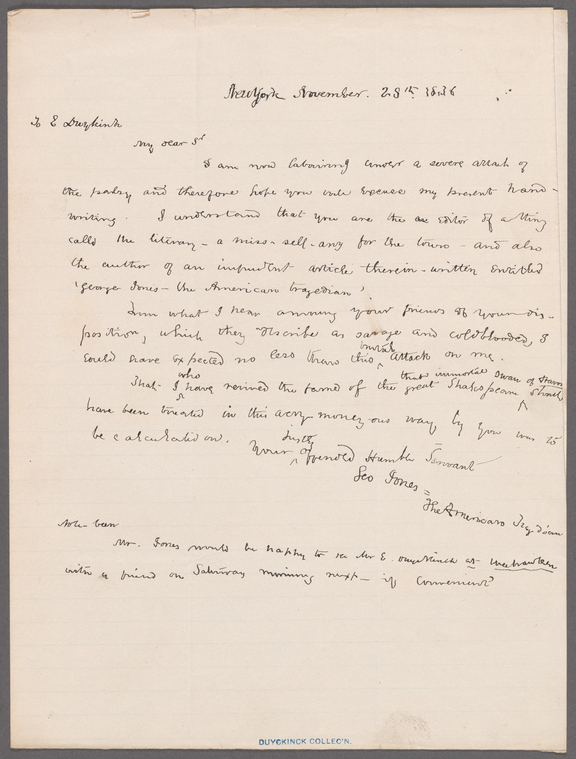 New York November. 28th 1836
To E Duykink
My dear Sr
I am now labouring under a severe attack of
the palsy and therefore hope you will Excuse my present hand-
writing. I understand that you are the Editor of a thing
called the literary - a miss-sell-any for the town - and also
the author of an impudent article therein-written Entitled
'George Jones - the American tragedian'.
from what I hear among your friends of your dis-
position, which they describe as savage and coldblooded, I
could have Expected no less than this brutal attack on me.
That I who have revived the fame of the great Shakspeare that immortal Swan of should
have been treated in this money-ous way by you was to
be calculated on.
Your justly offended Humble Servant
Geo Jones =
The American
Note-been
Mr. Jones would be happy to see Mr E. Duyckinck at
with a friend on Saturday morning next - if Convenient
DUYCKINCK COLLEC'N.